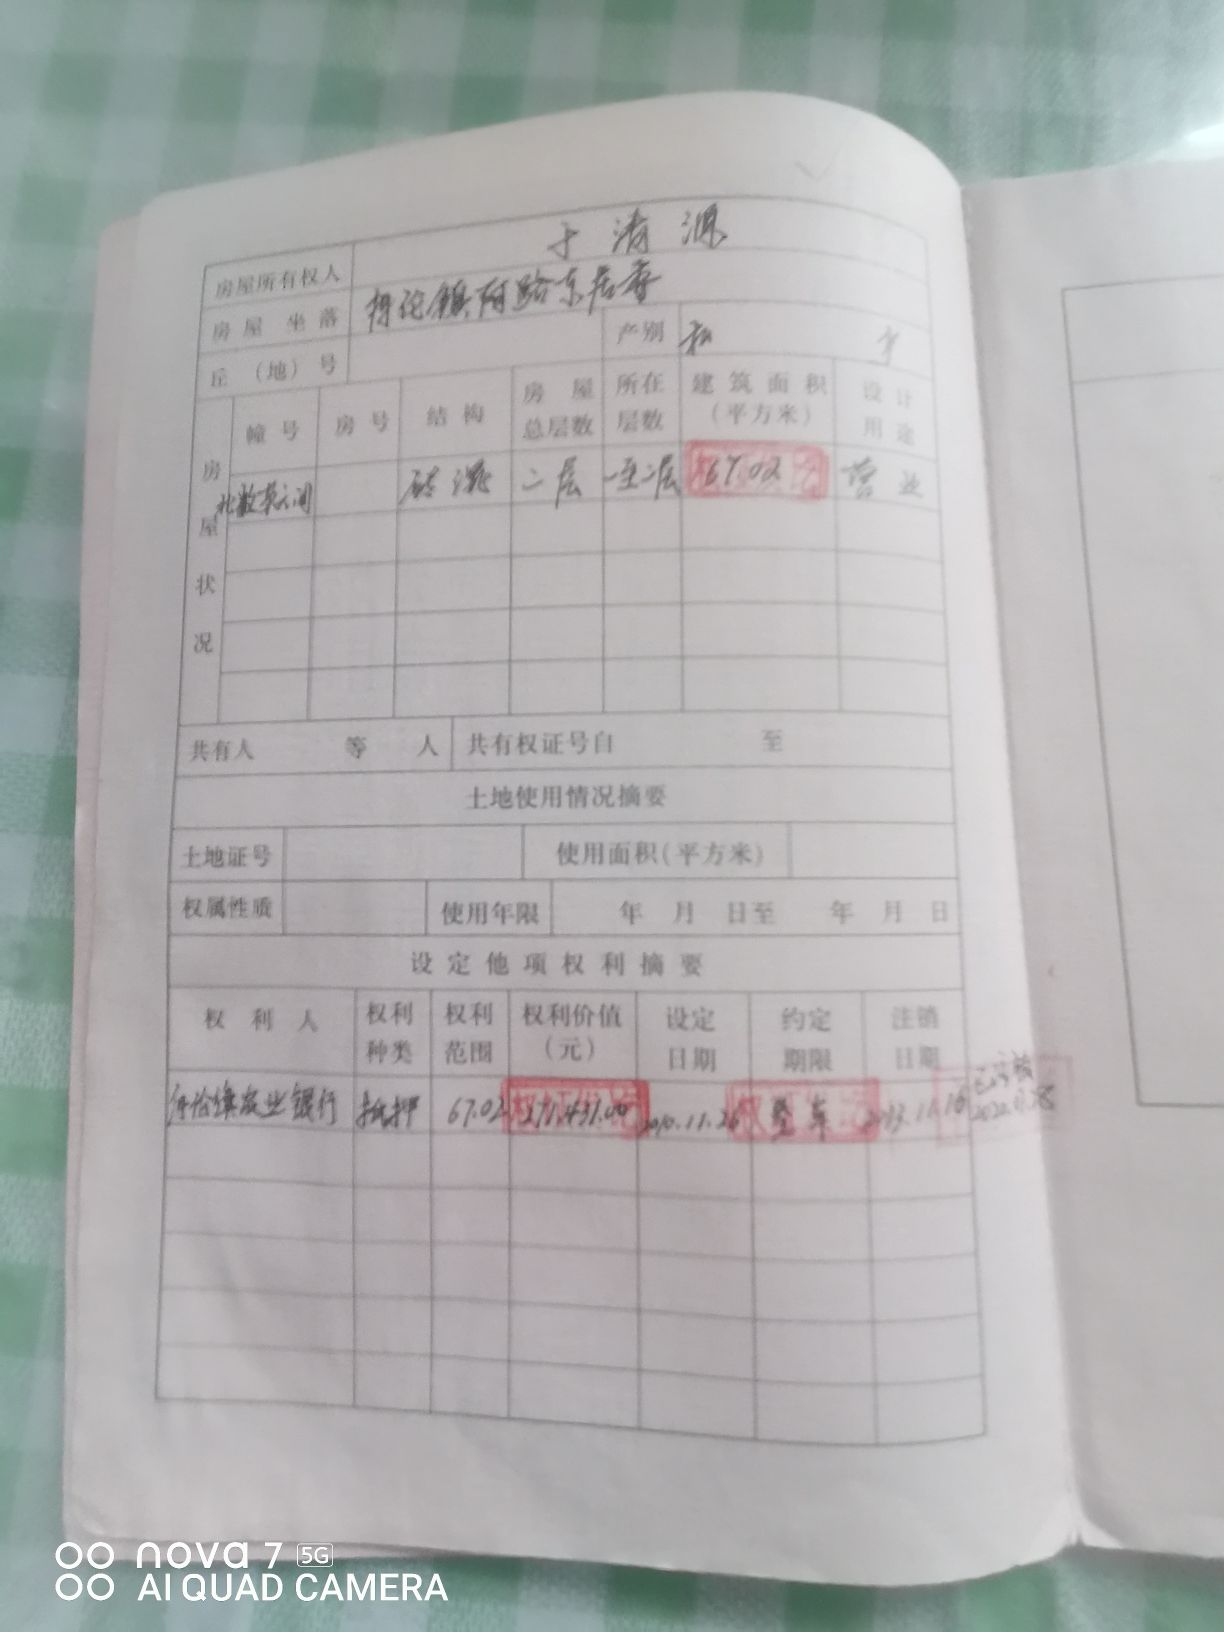 房屋所有权人 于清源
房屋坐落 镇 路东居委
丘（地）号 产别 私
房屋状况 幢号 房号 结构 房屋总层数 所在层数 建筑面积（平方米） 设计用途
北数 间 砖混 二层 一至二层 67.02 营业
共有人 等 人 共有权证号自 至
土地使用情况摘要
土地证号 使用面积（平方米）
权属性质 使用年限 年 月 日至 年 月 日
设定他项权利摘要
权利人 权利种类 权利范围 权利价值（元） 设定日期 约定期限 注销日期
镇农业银行 抵押 67.02 2010.11.26
nova 7 5G
AI QUAD CAMERA